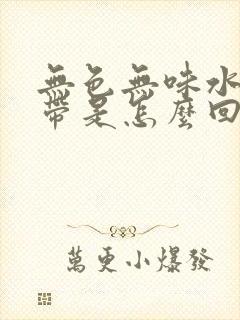 無色無味水
帶是怎麼回
萬更小爆發